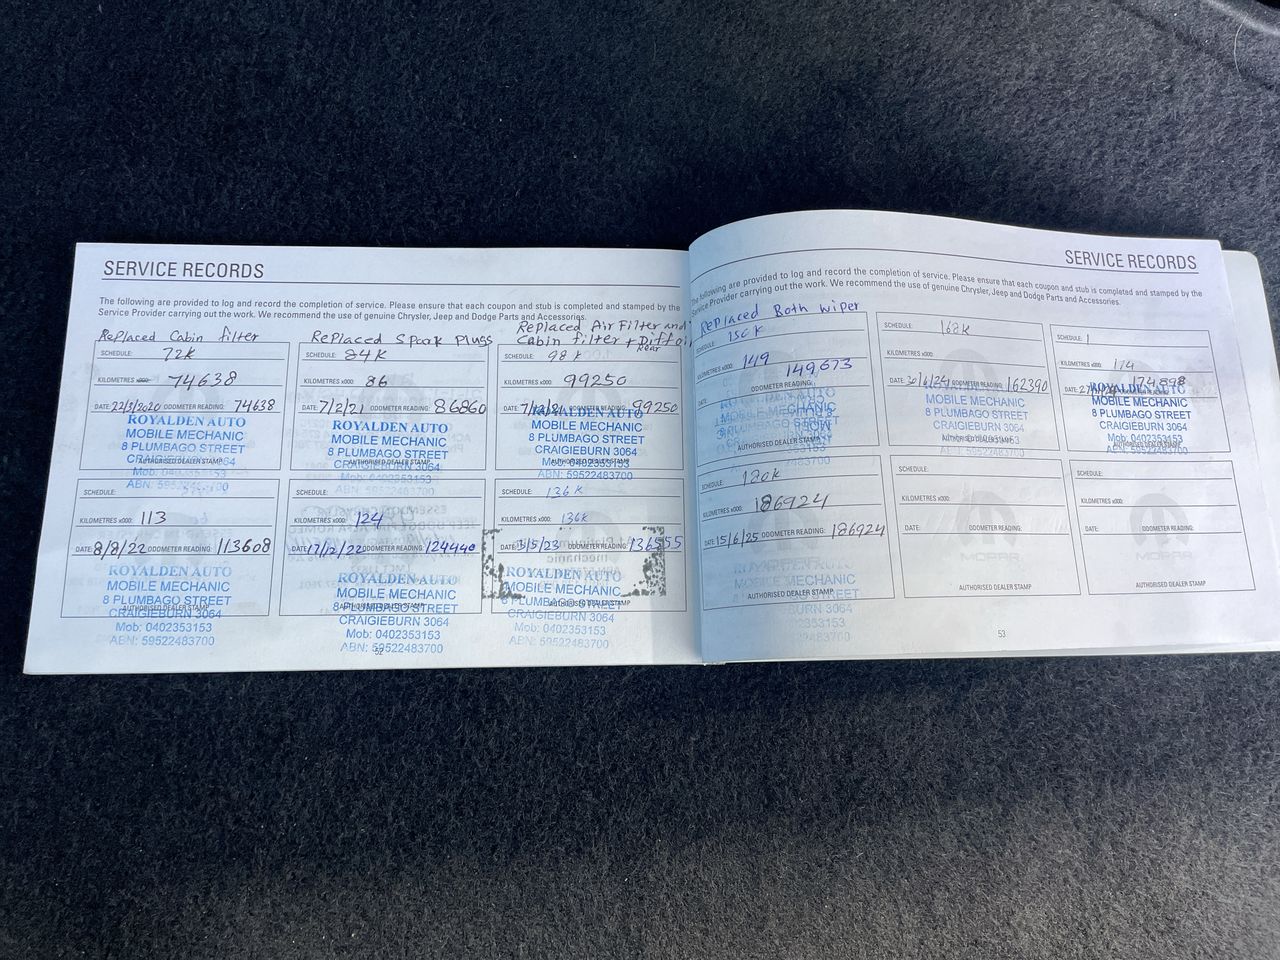 SERVICE RECORDS
The following are provided to log and record the completion of service. Please ensure that each coupon and stub is completed and stamped by the
Service Provider carrying out the work. We recommend the use of genuine Chrysler, Jeep and Dodge Parts and Accessories.
Replaced Cabin filter
SCHEDULE: 72K
KILOMETRES x000: 74638
DATE: 22/3/2020 ODOMETER READING: 74638
ROYALDEN AUTO
MOBILE MECHANIC
8 PLUMBAGO STREET
CRAIGIEBURN 3064
AUTHORISED DEALER STAMP
Mob: 0402353153
ABN: 59522483700
Replaced Spark Plugs
SCHEDULE: 84K
KILOMETRES x000: 86
DATE: 7/2/21 ODOMETER READING: 86860
ROYALDEN AUTO
MOBILE MECHANIC
8 PLUMBAGO STREET
CRAIGIEBURN 3064
AUTHORISED DEALER STAMP
Mob: 0402353153
ABN: 59522483700
Replaced Air Filter and
Cabin filter + Diff oil
Rear
SCHEDULE: 98K
KILOMETRES x000: 99250
DATE: 7/12/21 ODOMETER READING: 99250
ROYALDEN AUTO
MOBILE MECHANIC
8 PLUMBAGO STREET
CRAIGIEBURN 3064
AUTHORISED DEALER STAMP
Mob: 0402353153
ABN: 59522483700
SCHEDULE:
KILOMETRES x000: 113
DATE: 8/8/22 ODOMETER READING: 113608
ROYALDEN AUTO
MOBILE MECHANIC
8 PLUMBAGO STREET
AUTHORISED DEALER STAMP
CRAIGIEBURN 3064
Mob: 0402353153
ABN: 59522483700
SCHEDULE:
KILOMETRES x000: 124
DATE: 17/2/22 ODOMETER READING: 124440
ROYALDEN AUTO
MOBILE MECHANIC
8 PLUMBAGO STREET
AUTHORISED DEALER STAMP
CRAIGIEBURN 3064
Mob: 0402353153
ABN: 59522483700
52
SCHEDULE: 136K
KILOMETRES x000: 136K
DATE: 3/5/23 ODOMETER READING: 136555
ROYALDEN AUTO
MOBILE MECHANIC
8 PLUMBAGO STREET
AUTHORISED DEALER STAMP
CRAIGIEBURN 3064
Mob: 0402353153
ABN: 59522483700
SERVICE RECORDS
The following are provided to log and record the completion of service. Please ensure that each coupon and stub is completed and stamped by the
Service Provider carrying out the work. We recommend the use of genuine Chrysler, Jeep and Dodge Parts and Accessories.
Replaced Both wiper
SCHEDULE: 150K
KILOMETRES x000: 149
149,673
ODOMETER READING:
DATE:
AUTHORISED DEALER STAMP
SCHEDULE: 162K
KILOMETRES x000:
DATE: ODOMETER READING: 162390
ROYALDEN AUTO
MOBILE MECHANIC
8 PLUMBAGO STREET
CRAIGIEBURN 3064
AUTHORISED DEALER STAMP
SCHEDULE:
KILOMETRES x000: 174
DATE:
ROYALDEN AUTO
MOBILE MECHANIC
8 PLUMBAGO STREET
CRAIGIEBURN 3064
Mob: 0402353153
AUTHORISED DEALER STAMP
SCHEDULE:
KILOMETRES x000: 186924
DATE: 15/6/25 ODOMETER READING: 186924
AUTHORISED DEALER STAMP
SCHEDULE:
KILOMETRES x000:
DATE: ODOMETER READING:
MOPAR
AUTHORISED DEALER STAMP
SCHEDULE:
KILOMETRES x000:
DATE: ODOMETER READING:
MOPAR
AUTHORISED DEALER STAMP
53